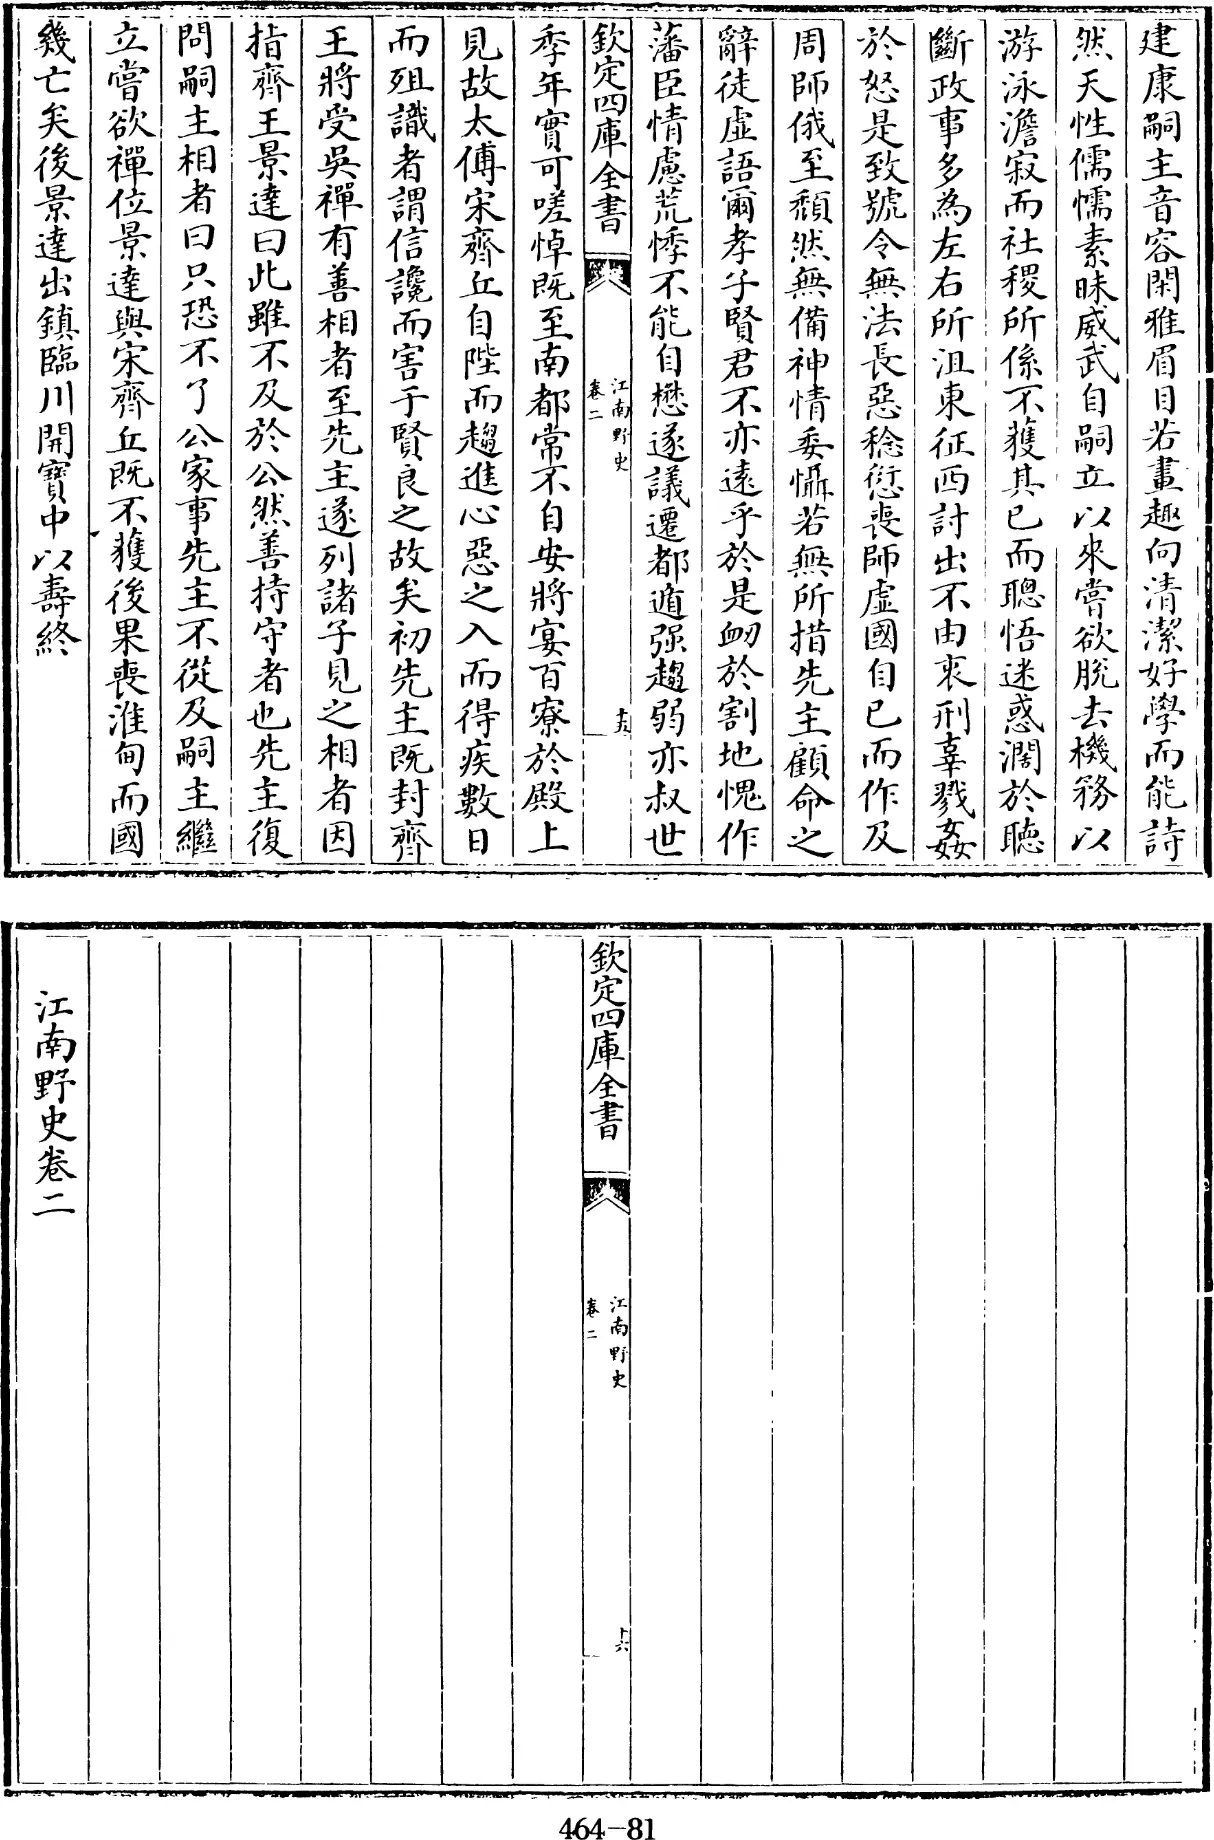 建康嗣主音容閑雅眉目若畫趣向清潔好學而能詩
然天性儒懦素昧威武自嗣立以來嘗欲脫去機務以
游泳澹寂而社稷所係不獲其已而聰悟迷惑濶於聽
斷政事多為左右所沮東征西討出不由衷刑辜戮姦
於怒是致號令無法長惡稔愆喪師虛國自已而作及
周師俄至頹然無備神情委懾若無所措先主顧命之
辭徒虛語爾孝子賢君不亦遠乎於是衂於割地愧作
藩臣情慮荒悸不能自懋遂議遷都遁强趨弱亦叔世
欽定四庫全書
江南野史
卷二
十五
季年實可嗟悼既至南都常不自安將宴百寮於殿上
見故太傅宋齊丘自陛而趨進心惡之入而得疾數日
而殂識者謂信讒而害于賢良之故矣初先主既封齊
王將受吳禪有善相者至先主遂列諸子見之相者因
指齊王景達曰此雖不及於公然善持守者也先主復
問嗣主相者曰只恐不了公家事先主不從及嗣主繼
立嘗欲禪位景達與宋齊丘既不獲後果喪淮甸而國
幾亡矣後景達出鎮臨川開寶中以壽終
欽定四庫全書
江南野史
卷二
十六
江南野史卷二
464-81